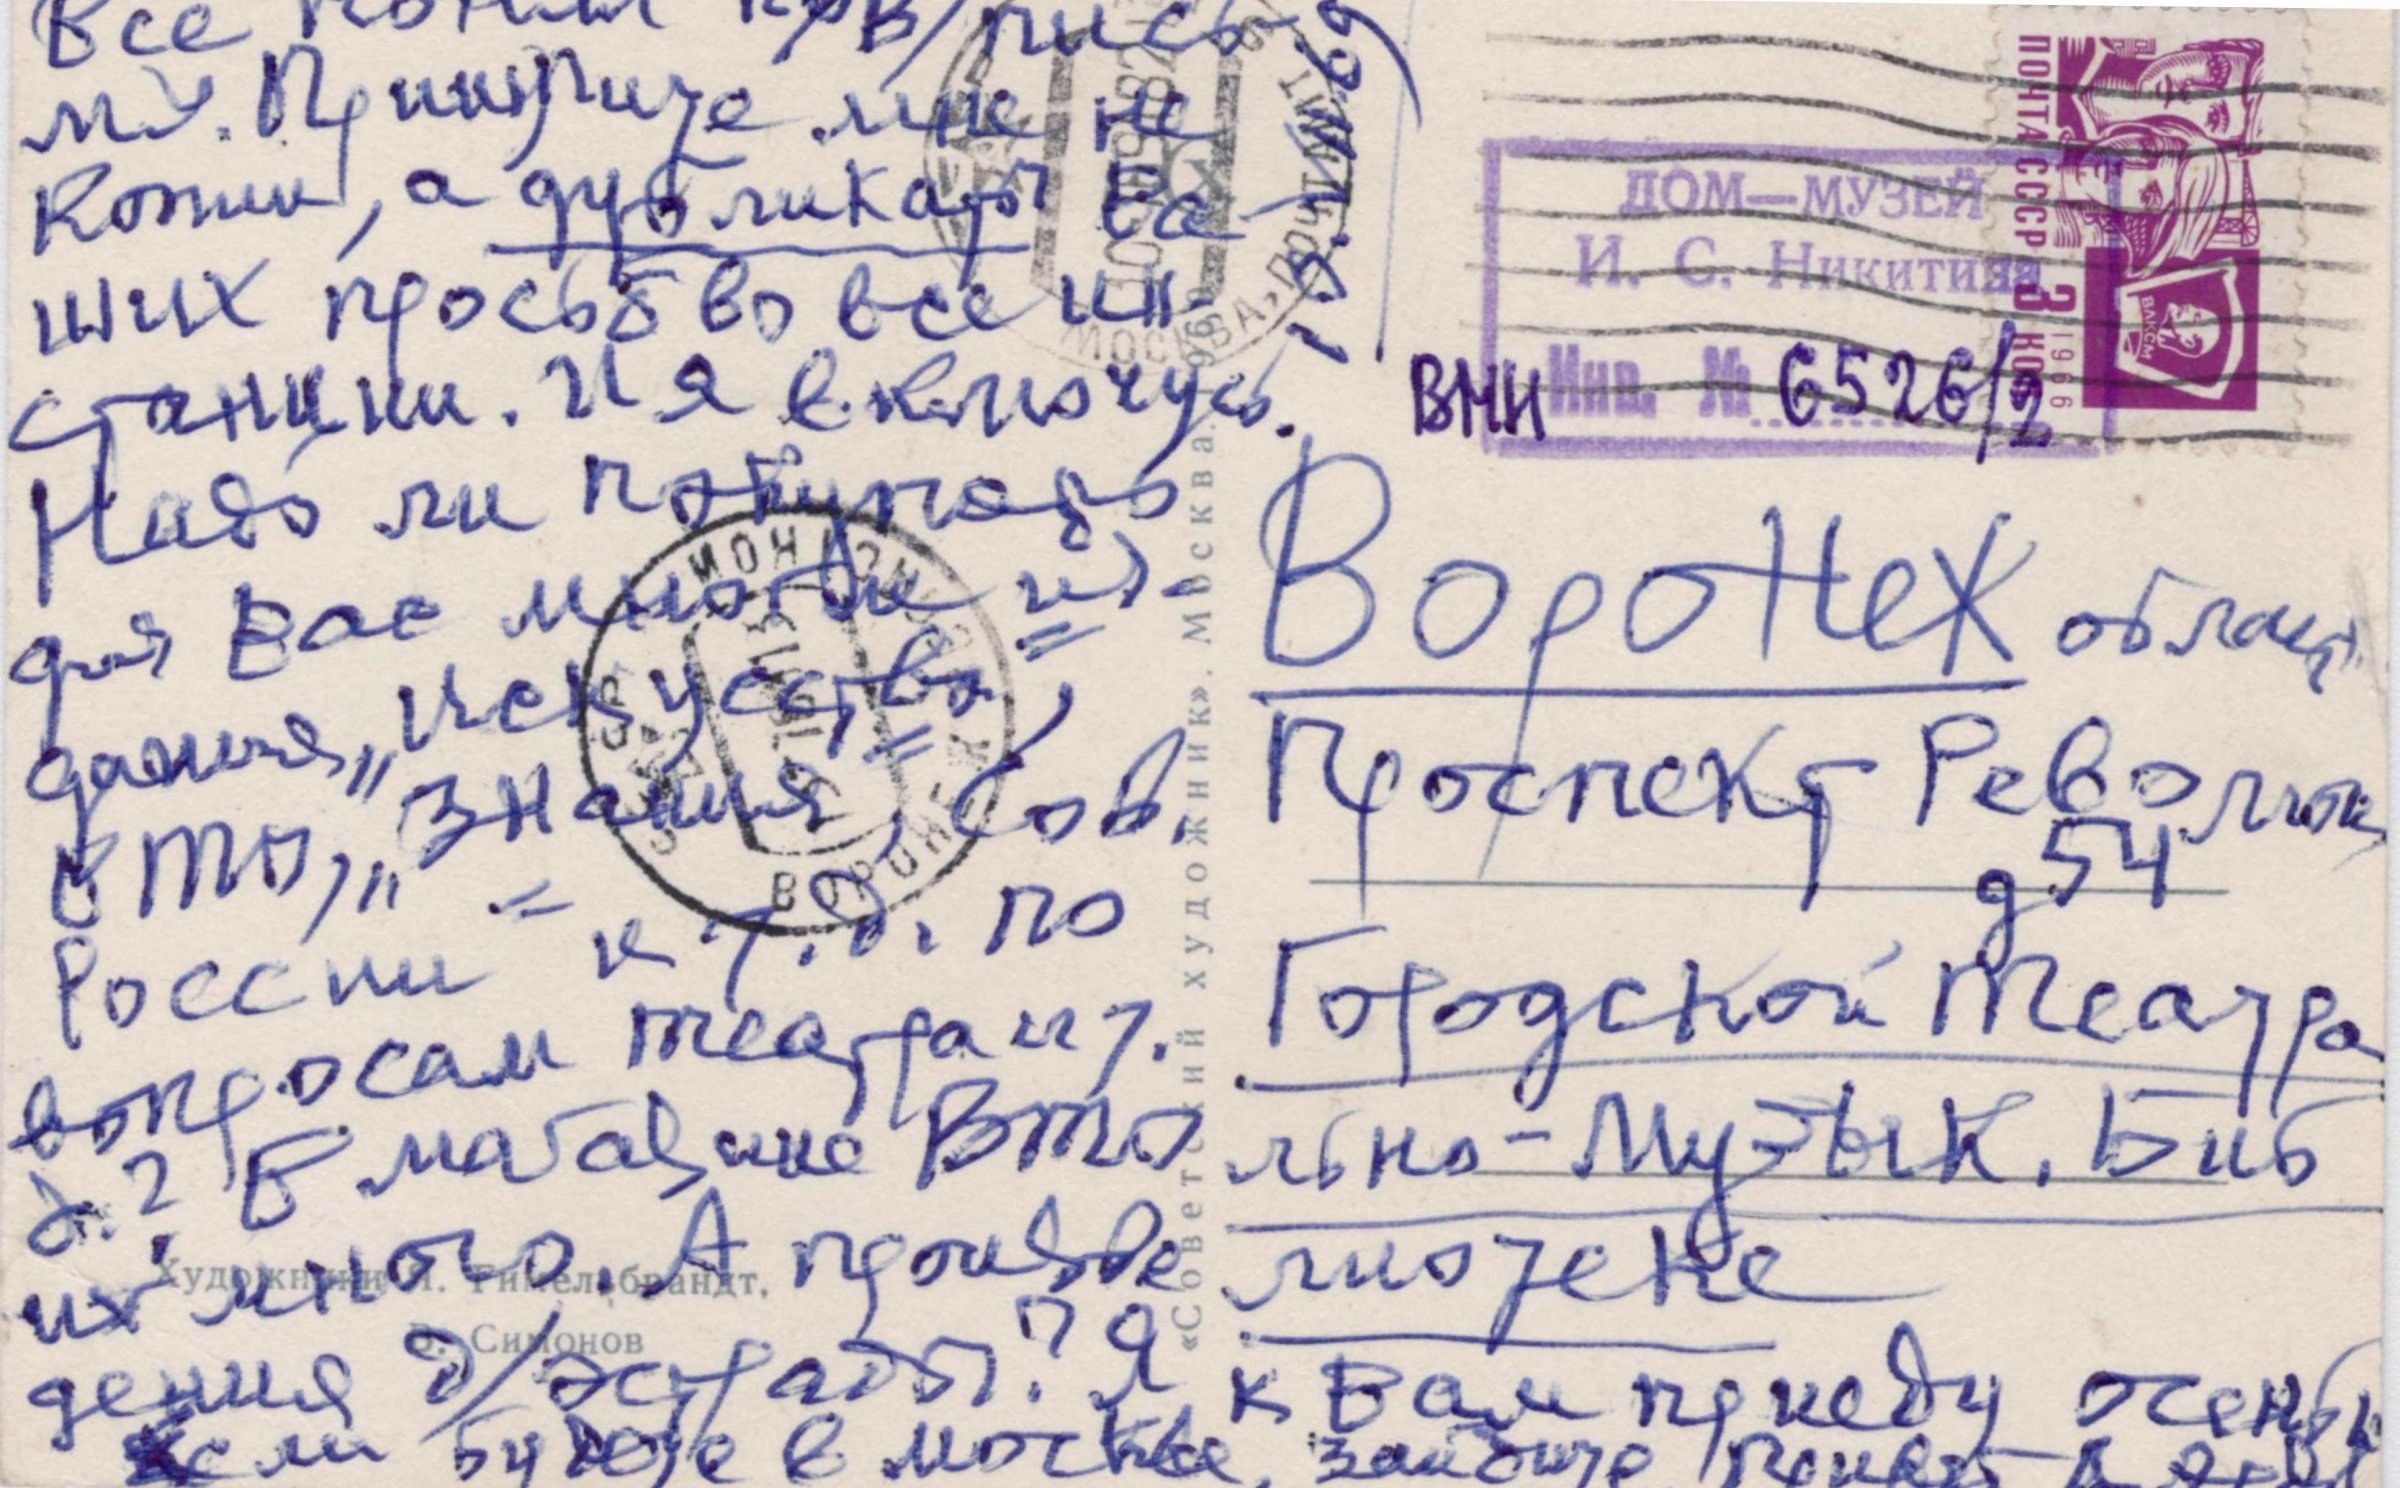 Все
му. Пришлите мне не
копии, а дубликат Ва-
ших просьб во все ин-
станции. И я включусь.
Надо ли покупать
для Вас многие из-
дания „Искусства",
ВТО, „Знания", „Сов.
России" и т.д. по
вопросам театра и т.
д.? В магазине ВТО
их много. А произве
дения д/эстрады? Я
к Вам приеду осенью
если будете в Москве, зайдите. Привет
Художники Н. Гипельбрандт,
В. Симонов
«Советский художник». Москва. 196
МОСКВА-ПОЧТАМТ
ВОРОНЕЖ
ПОЧТА СССР
3 КОП
1966
ВЛКСМ
ДОМ—МУЗЕЙ
И. С. Никитина
ВМН Инв. № 6526/2
Воронеж област.
Проспект Революции
д 54
Городской театра
льно-Музык. Биб
лиотеке